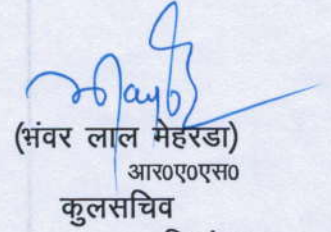 (भंवर लाल मेहरडा)
आर०ए०एस०
कुलसचिव